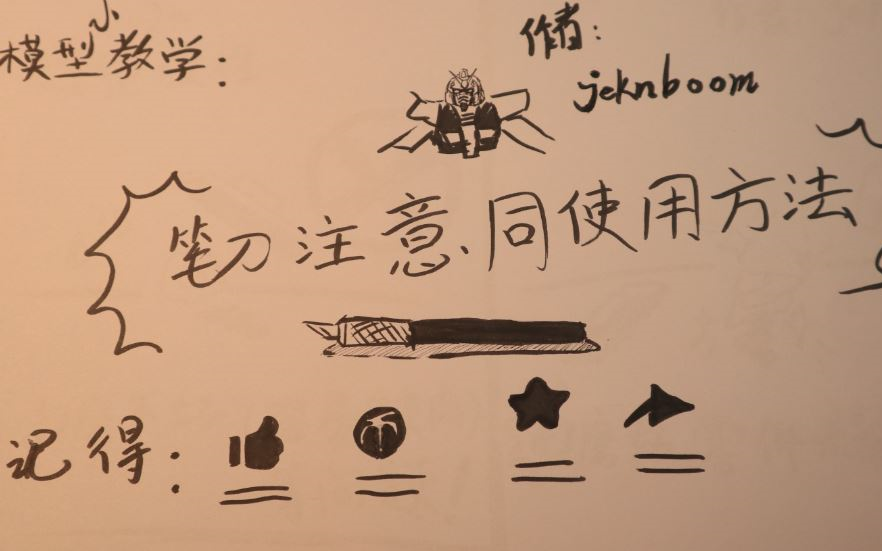 模型小教学:
作者:
jeknboom
笔刀注意同使用方法
记得: